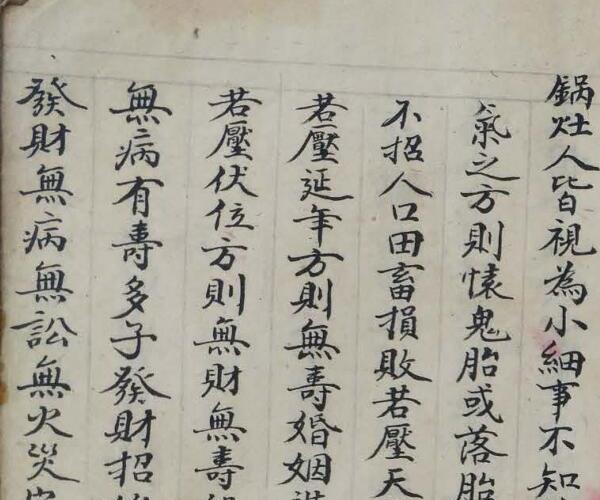 鍋灶人皆視為小細事不知
氣之方則懷鬼胎或落胎
不招人口田畜損敗若壓天
若壓延年方則無壽婚姻
若壓伏位方則無財無壽
無病有壽多子發財招
發財無病無訟無火災